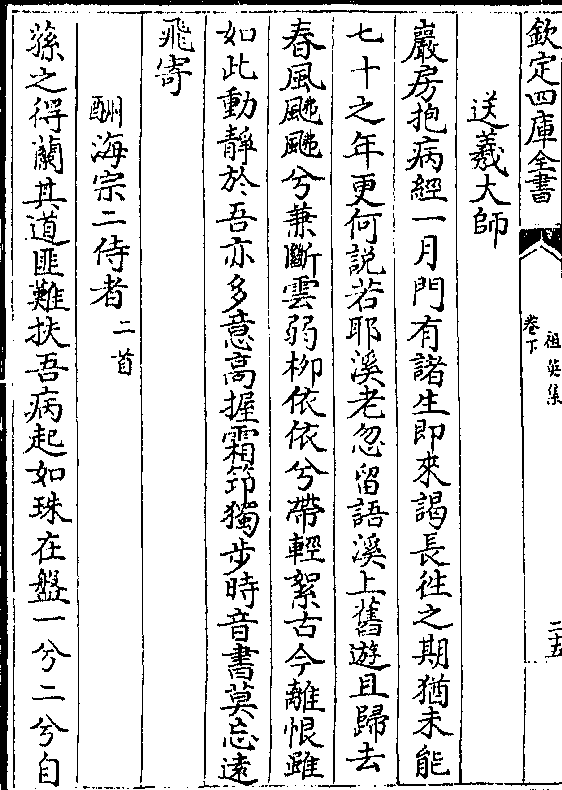 欽定四庫全書
祖英集
卷下
二五
送羲大師
巖房抱病經一月門有諸生即來謁長往之期猶未能
七十之年更何説若耶溪老忽留語溪上舊遊且歸去
春風颸颸兮兼斷雲弱柳依依兮帶輕絮古今離恨雖
如此動靜於吾亦多意高握霜笻獨步時音書莫忘遠
飛寄
酬海宗二侍者二首
蓀之得蘭其道匪難扶吾病起如珠在盤一兮二兮自